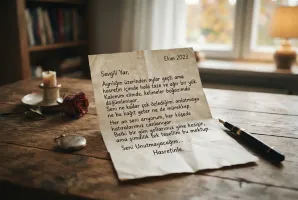 Ekim 2023
Sevgili Yar,
Ayrılığın üzerinden aylar geçti ama
hasretin içimde hala taze ve ağır bir yük.
Kalemim elimde, kelimeler boğazımda
düğümleniyor.
Seni ne kadar çok özlediğimi anlatmaya
ne bu kağıt yeter ne de mürekkep.
Her an seni arıyorum, her köşede
hatıralarımız canlanıyor.
Belki bir gün yollarımız yine kesişir,
ama şimdilik tek tesellim bu mektup.
Seni Unutmayacağım...
Hasretinle.